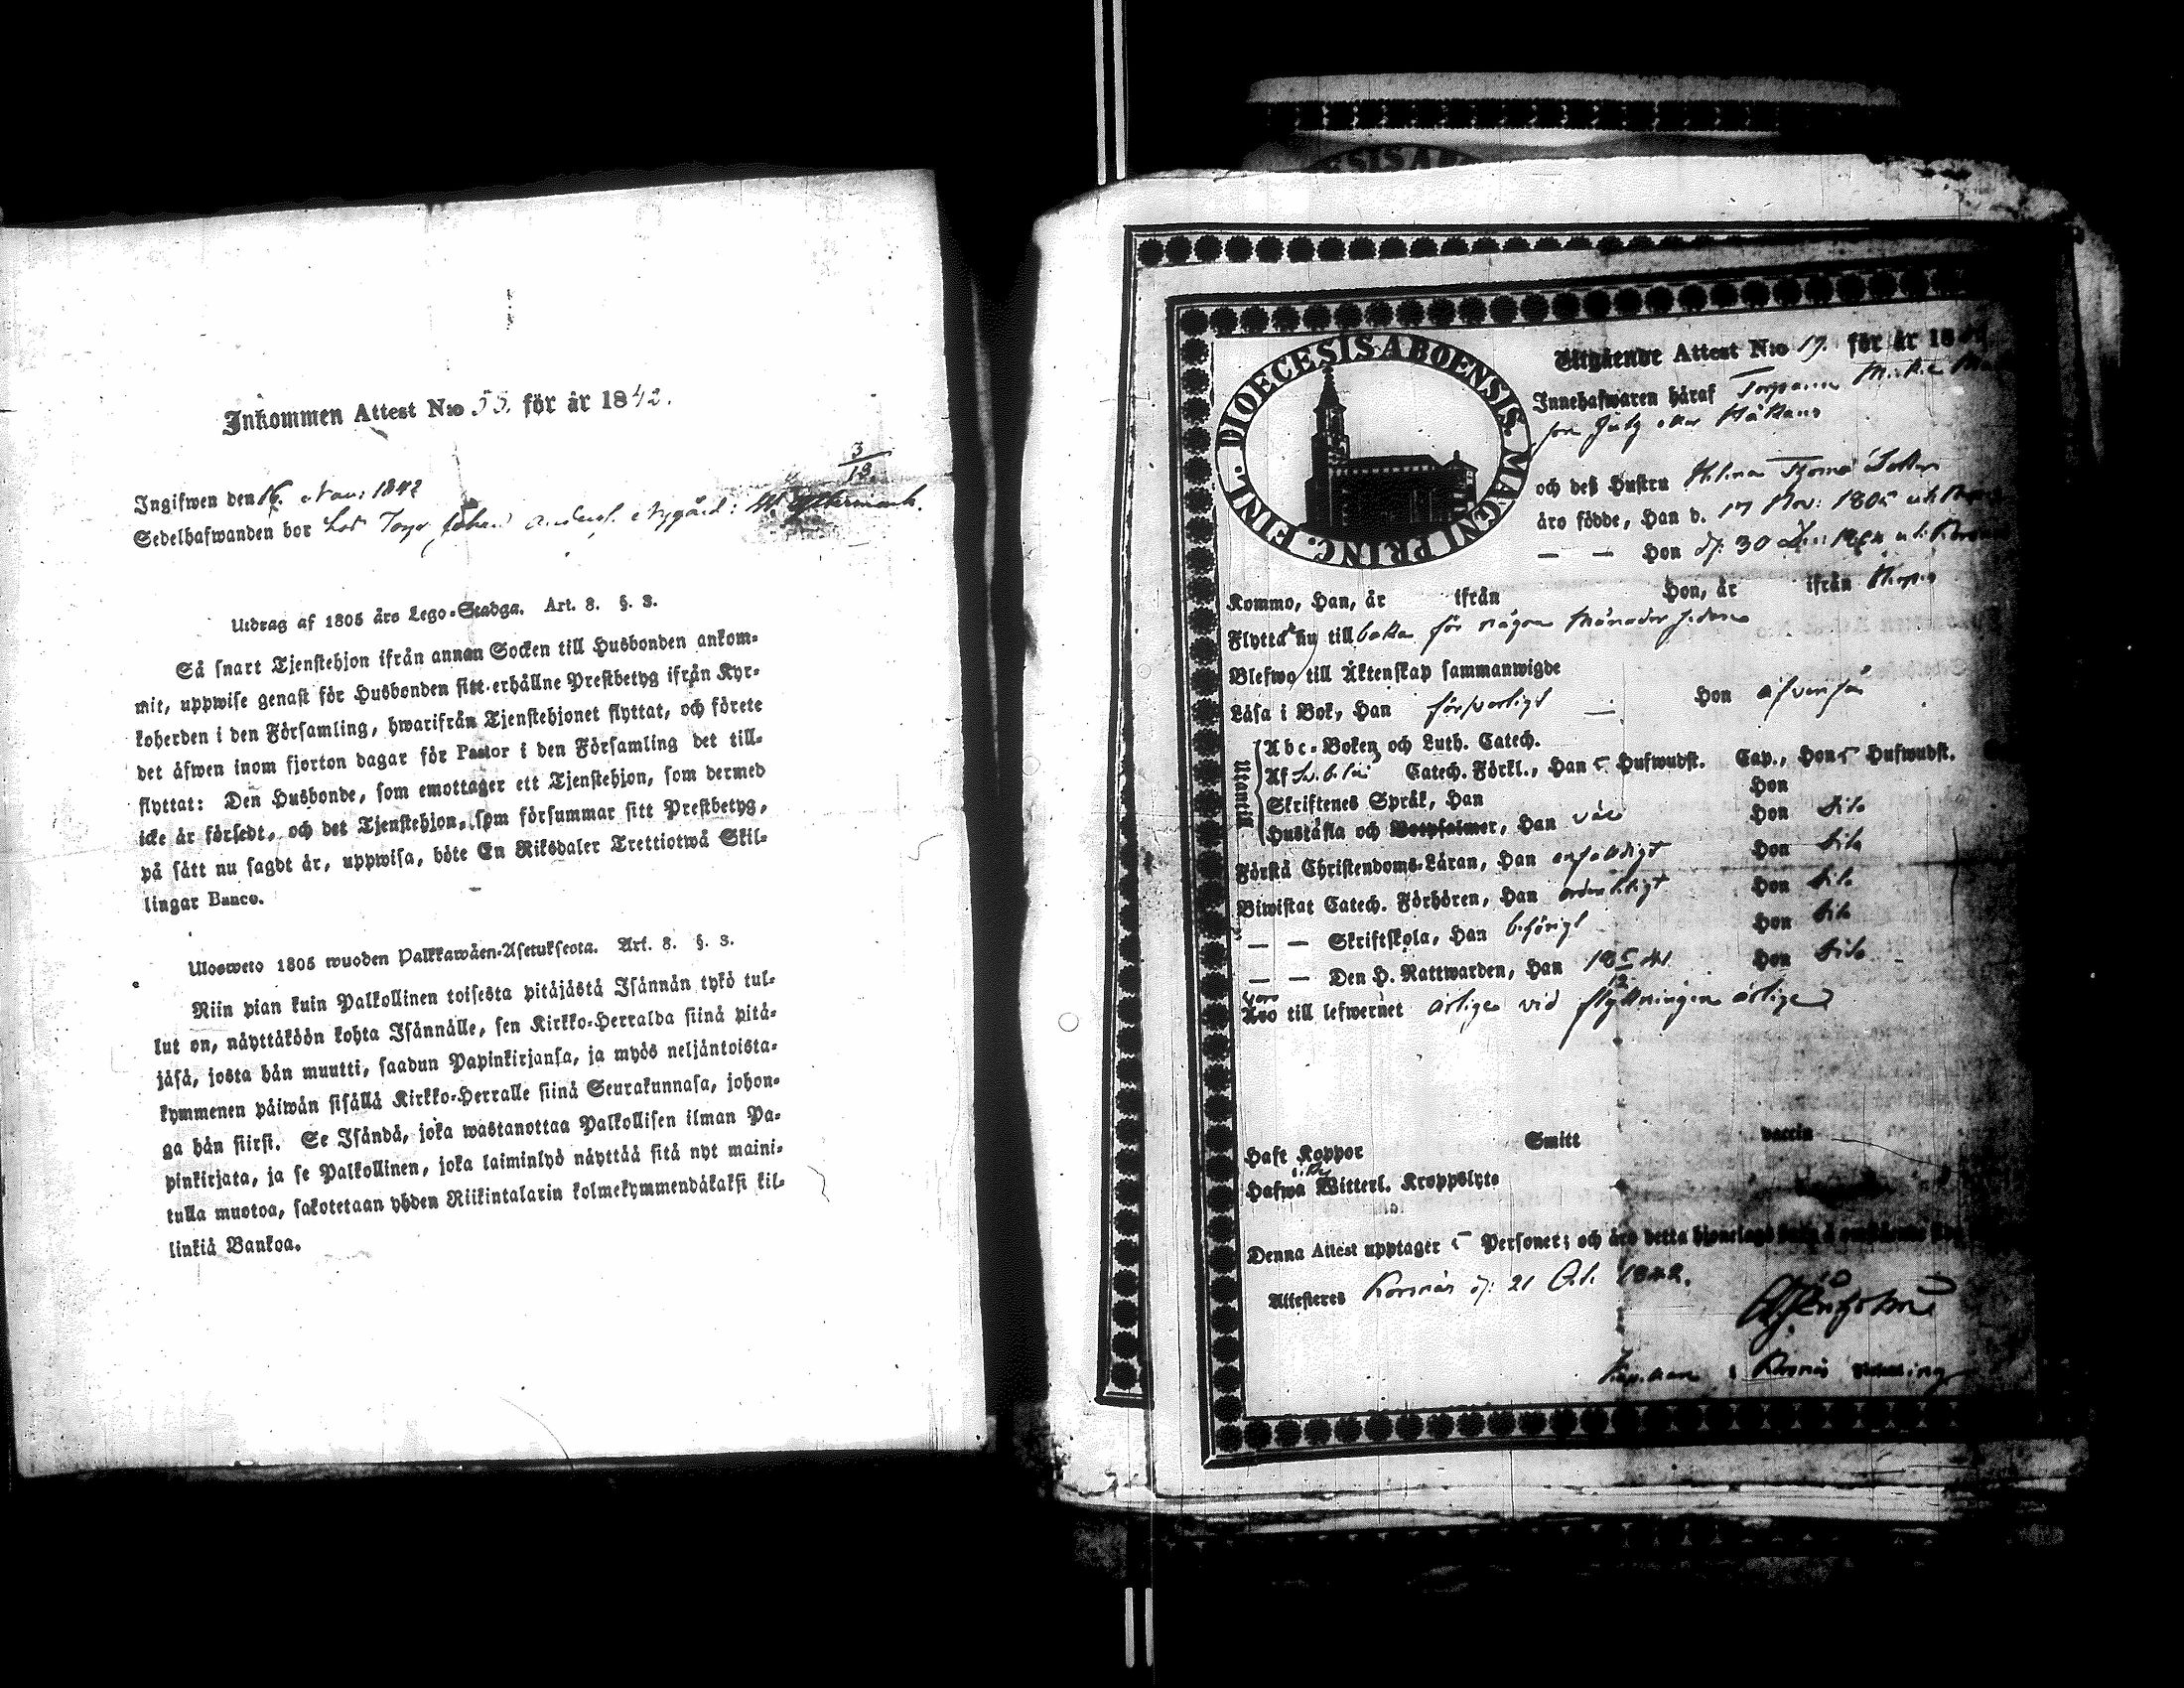 Inkommen Attest N:o 55. för år 1842.
3
13.
Ingifwen den 16. Nov: 1842
Sedelhafwanden bor hos Torp. Johan Anders. Nygård: W. Yttermark.
Utdrag af 1805 års Lego-Stadga. Art. 8. §. 3.
Så snart Tjenstehjon ifrån annan Socken till Husbonden ankom-
mit, uppwise genast för Husbonden sitt erhållne Prestbetyg ifrån Kyr-
koherden i den Församling, hwarifrån Tjenstehjonet flyttat, och förete
det äfwen inom fjorton dagar för Pastor i den Församling det till-
flyttat: Den Husbonde, som emottager ett Tjenstehjon, som dermed
icke är försedt, och det Tjenstehjon, som försummar sitt Prestbetyg,
på sätt nu sagdt är, uppwisa, böte En Riksdaler Trettiotwå Skil-
lingar Banco.
Ulosweto 1805 wuoden Palkkawäen-Asetuksesta. Art. 8. §. 3.
Niin pian kuin Palkollinen toisesta pitäjästä Isännän tykö tul-
lut on, näyttäköön kohta Isännälle, sen Kirkko-Herralda siinä pitä-
jäsä, josta hän muutti, saadun Papinkirjansa, ja myös neljäntoista-
kymmenen päiwän sisällä Kirkko-Herralle siinä Seurakunnasa, johon-
ga hän siirsi. Se Isändä, joka wastanottaa Palkollisen ilman Pa-
pinkirjata, ja se Palkollinen, joka laiminlyö näyttää sitä nyt maini-
tulla muotoa, sakotetaan yhden Riikintalarin kolmekymmendäkaksi kil-
linkiä Bankoa.
DIOECESIS ABOENSIS. MAGNI PRINC. FINL.
Utgående Attest N:o 17. för år 18
Innehafwaren häraf Torparen
och deß Hustru
äro födde, Han d. 17 Nov: 1805
— — Hon d: 30
Kommo, Han, år ifrån Hon, år ifrån
Flytta nu tillbaka för några Månader sedan
Blefwo till Äktenskap sammanwigde
Läsa i Bok, Han försvarligt — Hon äfvenså
Utantill
Abc-Boken och Luth. Catech.
Af Catech. Förkl., Han 5 Hufwudst. Cap., Hon 5 Hufwudst.
Skriftenes Språk, Han Hon
Hustafla och Botpsalmer, Han väl Hon dito
Förstå Christendoms-Läran, Han enfaldigt Hon dito
Biwistat Catech. Förhören, Han ordentligt Hon dito
— — Skriftskola, Han behörigt Hon dito
— — Den H. Nattwarden, Han Hon dito
voro
Äro till lefwernet ärlige vid flyttningen ärlige
Haft Koppor Smitt vaccin
icke
Hafwa Witterl. Kroppslyte
Denna Attest upptager 5 Personer; och äro detta hjonelags
Attesteras Korsnäs d: 21 Oct. 1842.
Korsnäs